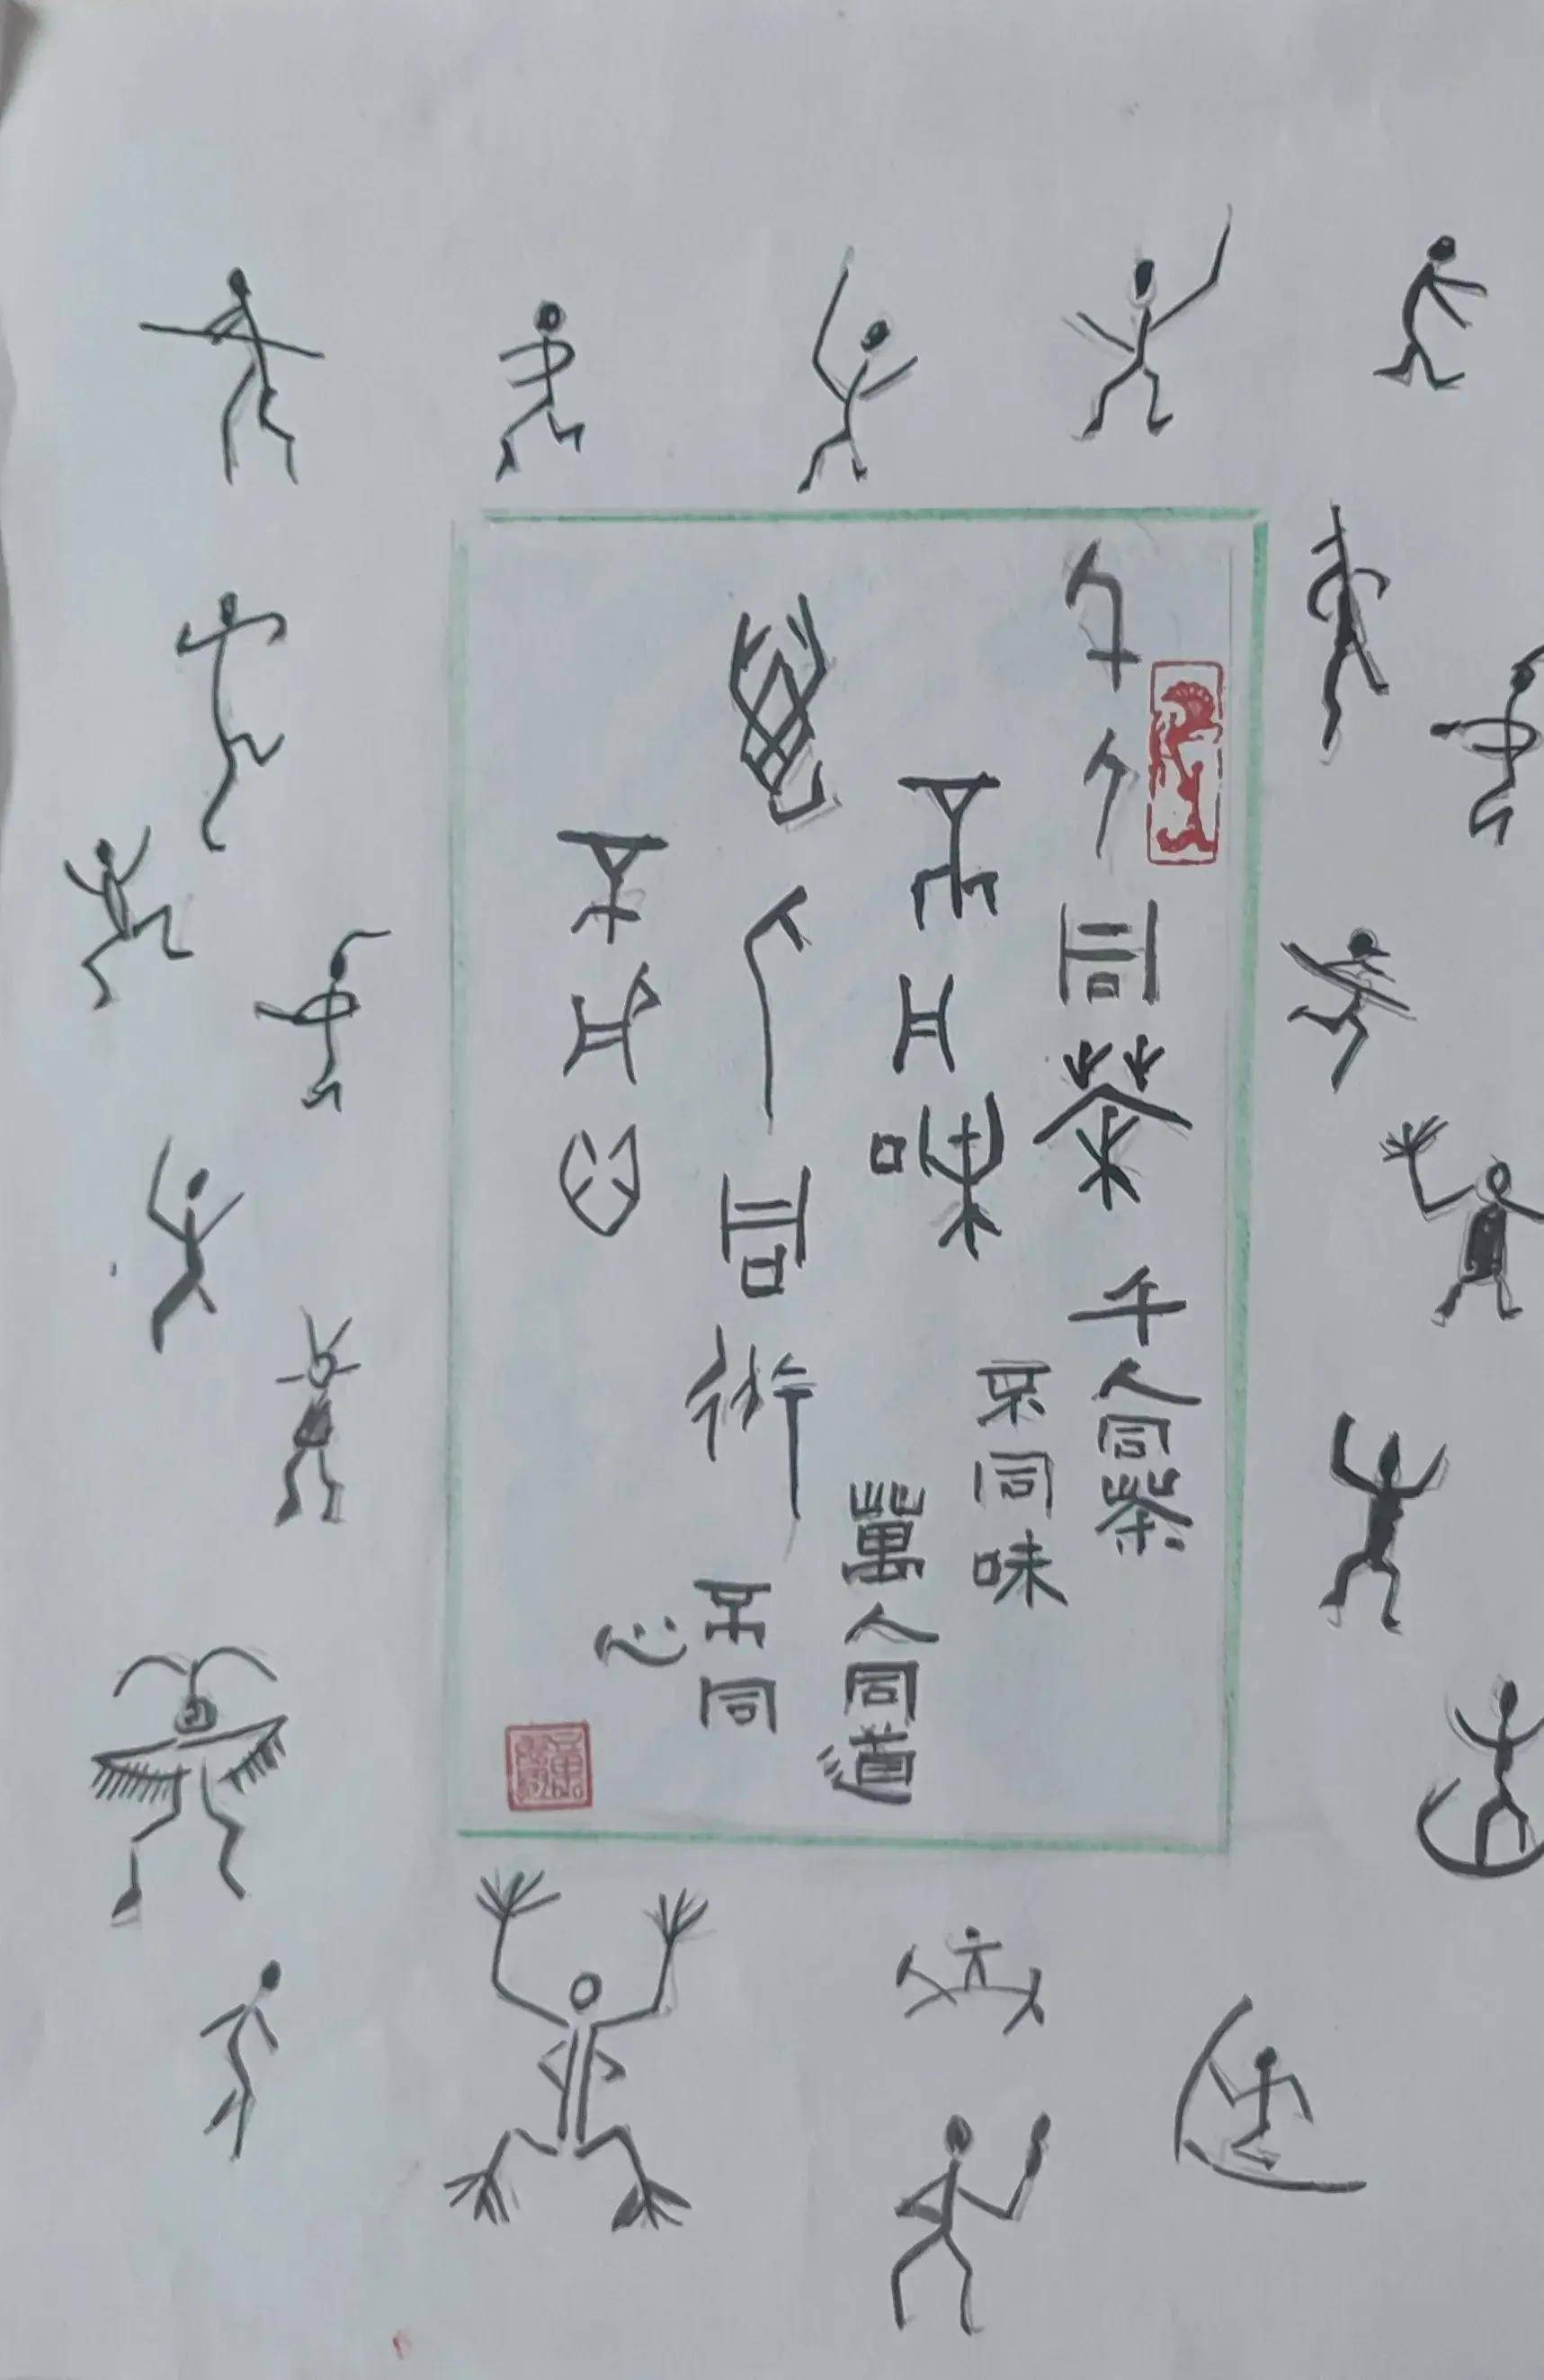 千人同茶
不同味
萬人同道
不同心
千人同茶
不同味
萬人同道
不同
心